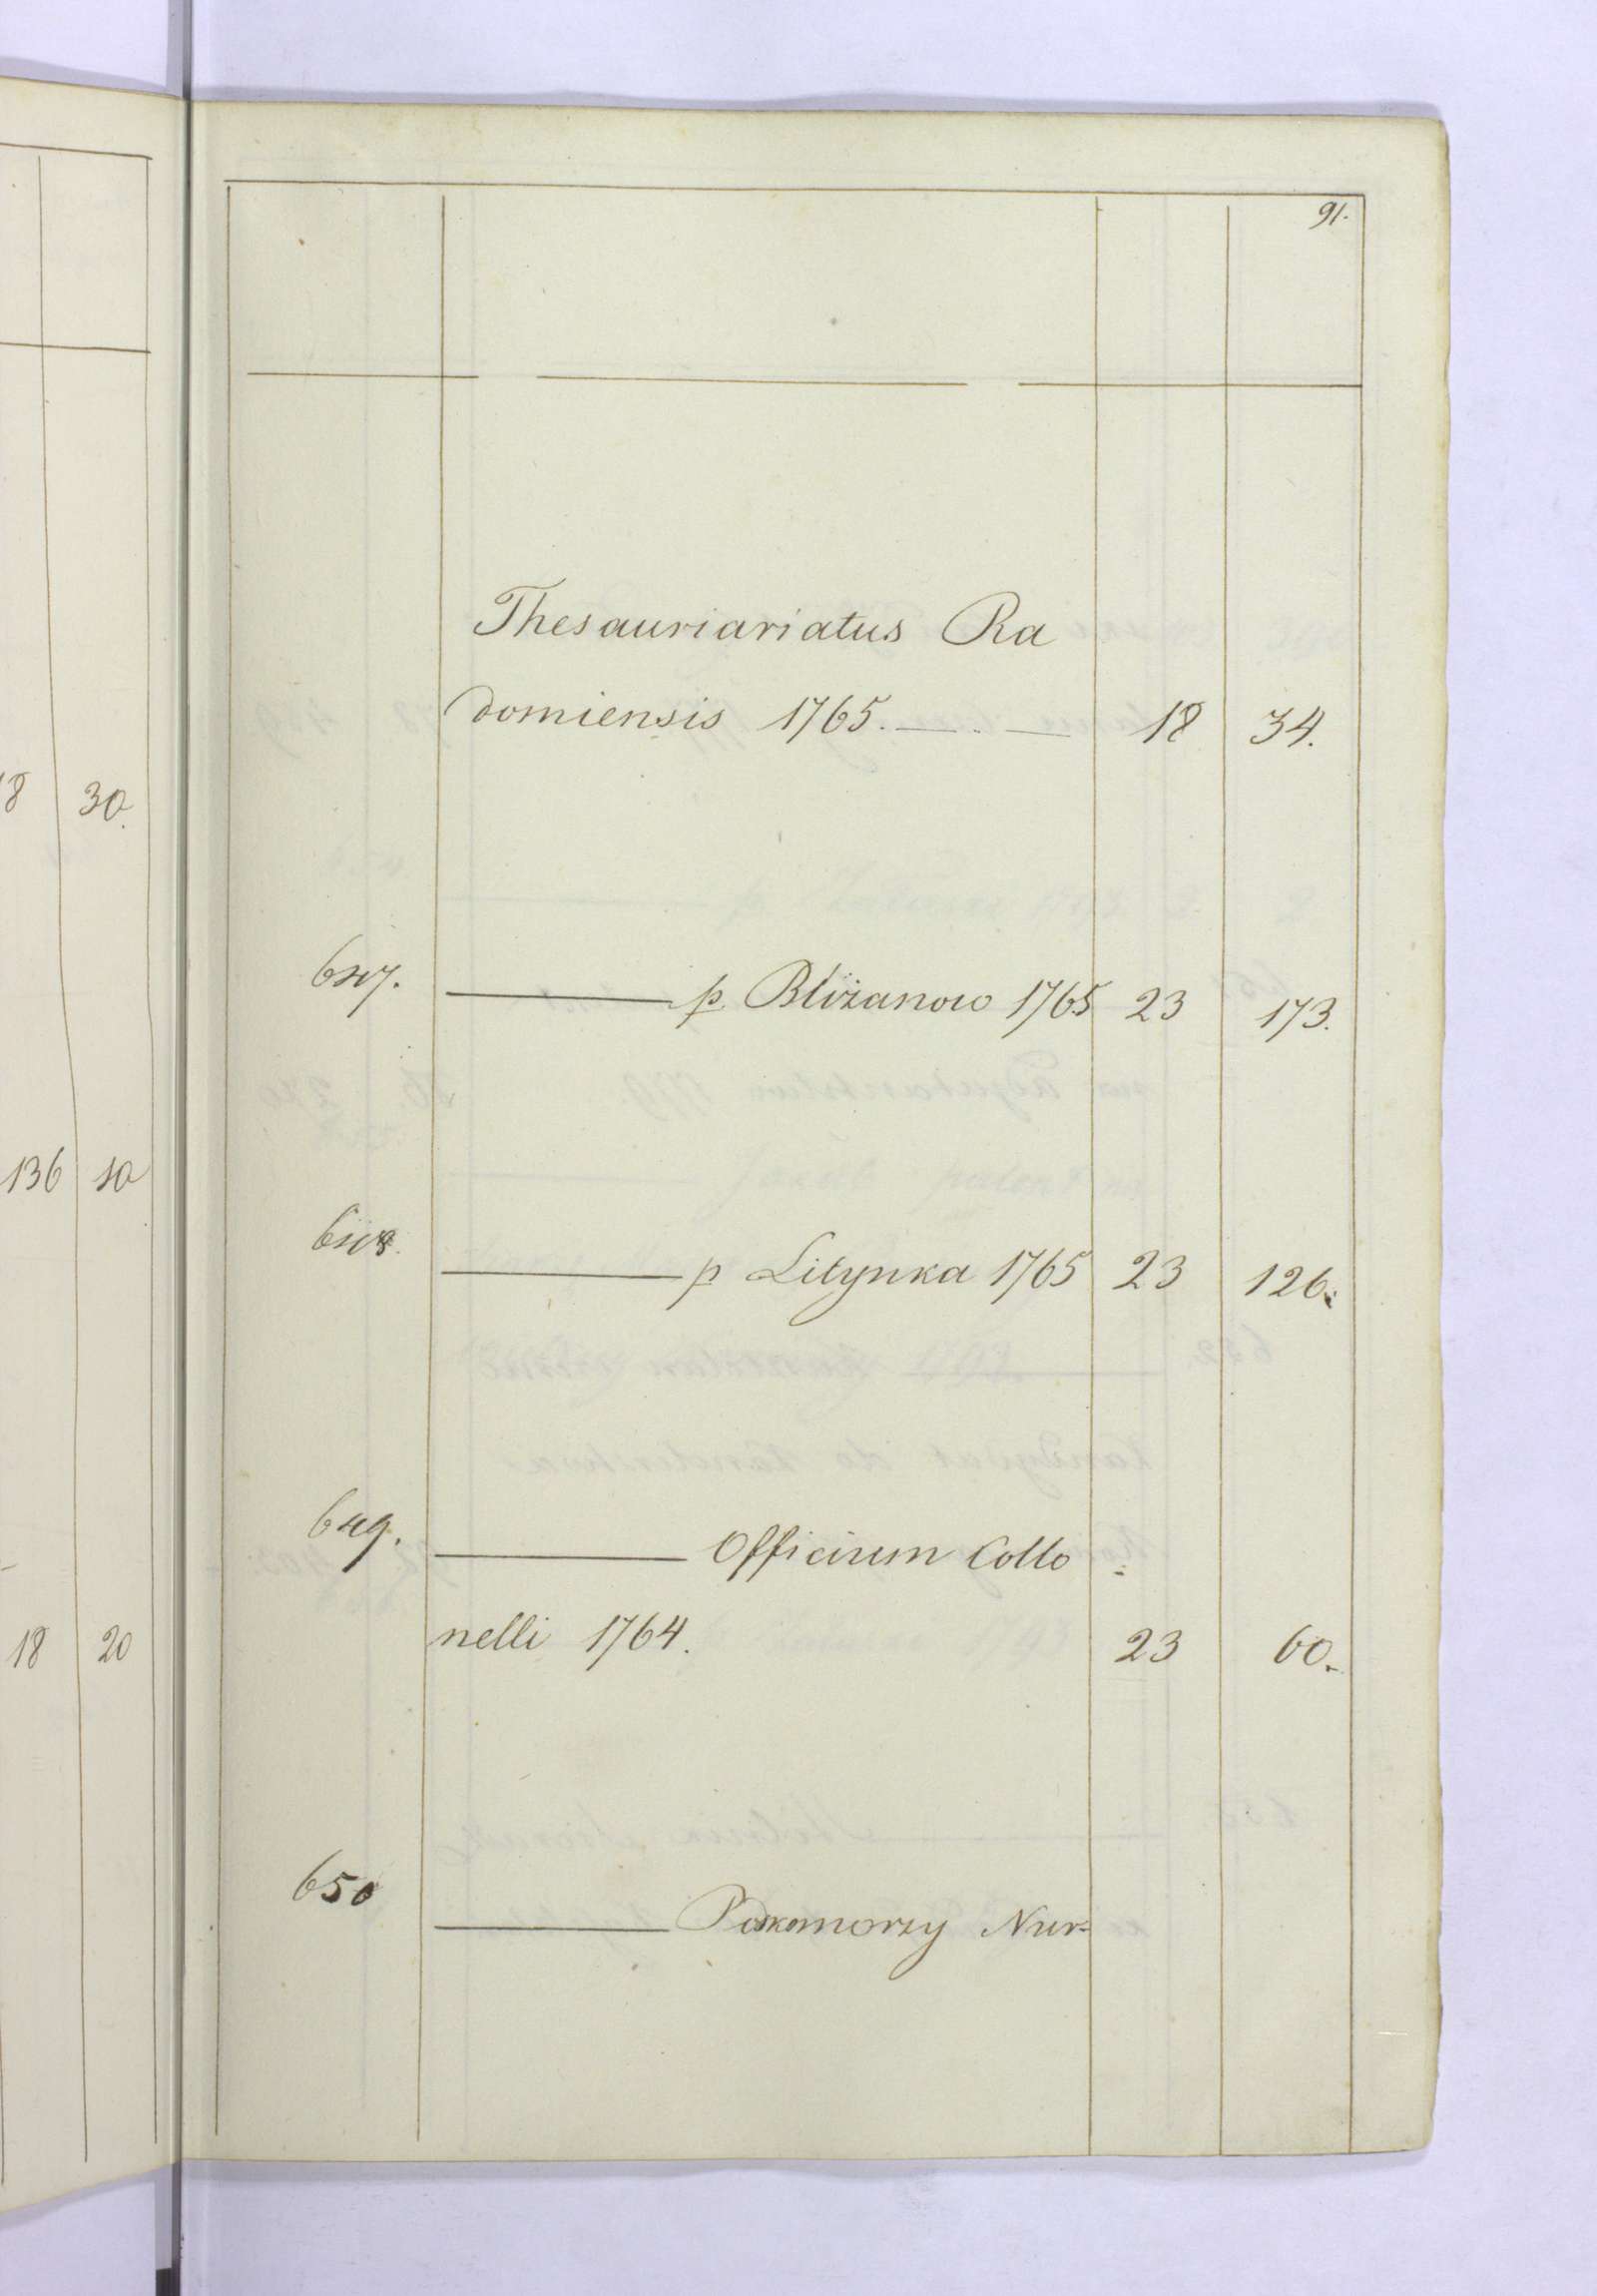 91.
Thesauriariatus Ra
domiensis 1765. 18 34.
8 30.
647. p. Bliżanow 1765 23 173.
136 10
648. p Litynka 1765 23 126.
649. Officium Collo
nelli 1764. 23 60.
18 20
650 Podkomorzy Nur=